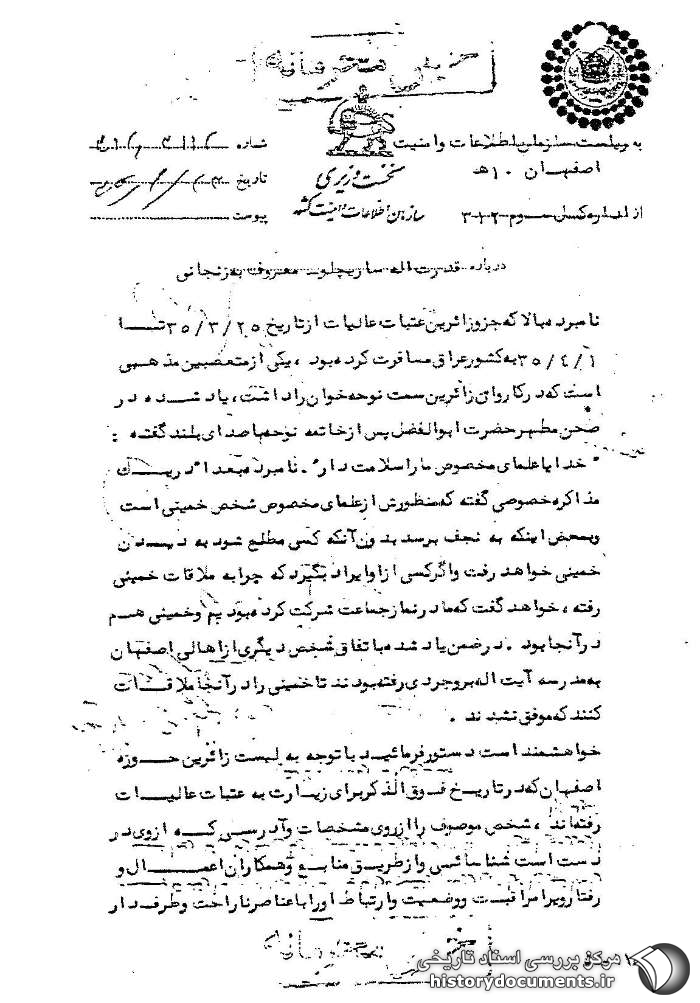 خیلی محرمانه
به ریاست سازمان اطلاعات و امنیت
اصفهان ۱۰ هـ
از اداره کل سوم ۳۱۲
نخست وزیری
سازمان اطلاعات و امنیت کشور
شماره
تاریخ
پیوست
درباره قدرت اله ساریچلو معروف به زنجانی
نامبرده بالا که جزو زائرین عتبات عالیات از تاریخ ۳۵/۳/۲۵ تا
۳۵/۴/۱ به کشور عراق مسافرت کرده بود، یکی از متعصبین مذهبی
است که در کاروان زائرین سمت نوحه خوان را داشت، یاد شده در
صحن مطهر حضرت ابوالفضل پس از خاتمه نوحه با صدای بلند گفته :
"خدایا علمای مخصوص ما را سلامت دار". نامبرده بعدا" در یک
مذاکره خصوصی گفته که منظورش از علمای مخصوص شخص خمینی است
و بمحض اینکه به نجف برسد بدون آنکه کسی مطلع شود به دیدن
خمینی خواهد رفت و اگر کسی از او ایراد بگیرد که چرا به ملاقات خمینی
رفته، خواهد گفت که ما در نماز جماعت شرکت کرده بودیم و خمینی هم
در آنجا بود. در ضمن یاد شده باتفاق شخص دیگری از اهالی اصفهان
به مدرسه آیت اله بروجردی رفته بودند تا خمینی را در آنجا ملاقات
کنند که موفق نشدند.
خواهشمند است دستور فرمائید با توجه به لیست زائرین حوزه
اصفهان که در تاریخ فوق الذکر برای زیارت به عتبات عالیات
رفته اند، شخص موصوف را از روی مشخصات و آدرسی که از وی در
دست است شناسائی و از طریق منابع و همکاران اعمال و
رفتار ویرا مراقبت و وضعیت و ارتباط او را با عناصر ناراحت و طرفدار
خیلی محرمانه
مرکز بررسی اسناد تاریخی
historydocuments.ir